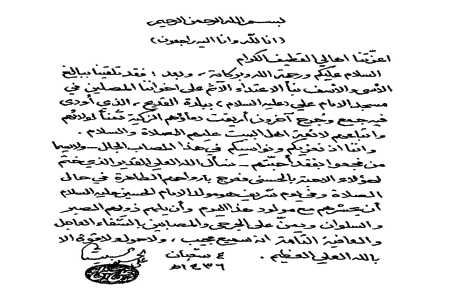 بسم الله الرحمن الرحيم
(انا لله وانا اليه راجعون)
اعزتنا اهالي القطيف الكرام
السلام عليكم ورحمة الله وبركاته، وبعد: فقد تلقينا ببالغ
الأسى والأسف نبأ الاعتداء الآثم على اخواننا المصلين في
مسجد الامام علي (عليه السلام) ببلدة القديح، الذي أودى
فيه جمع وجرح آخرون أريقت دماؤهم الزكية ثمناً لولائهم
واتباعهم لائمة اهل البيت عليهم الصلاة والسلام.
واننا اذ نعزيكم ونواسيكم في هذا المصاب الجلل - ولاسيما
من فجعوا بفقد أحبتهم - نسأل الله العلي القدير الذي ختم
لهؤلاء الاعزة بالحسنى وعرج بارواحهم الطاهرة في حال
الصلاة وفي يوم شريف هو مولد الامام الحسين عليه السلام
أن يحشرهم مع مولود هذا اليوم وأن يلهم ذويهم الصبر
و السلوان ويمن على الجرحى والمصابين بالشفاء العاجل
و العافية التامة انه سميع مجيب، ولاحول ولاقوة الا
بالله العلي العظيم.
٤ شعبان
١٤٣٦هـ